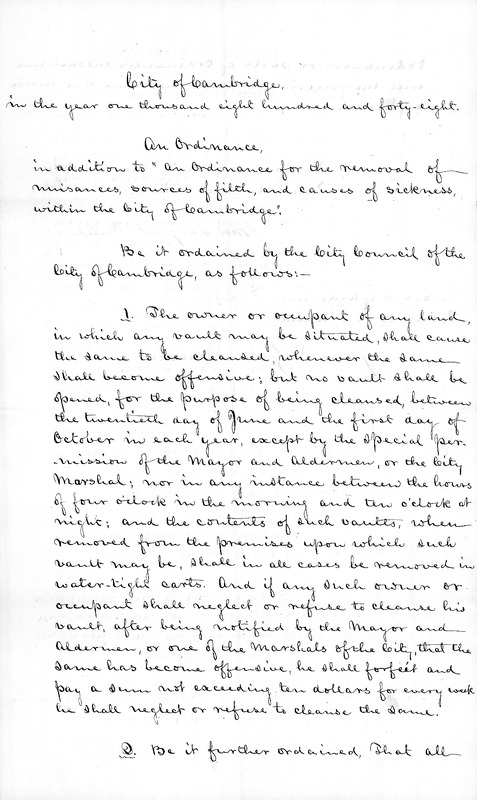 City of Cambridge,
in the year one thousand eight hundred and forty-eight.
An Ordinance,
in addition to "An Ordinance for the removal of
nuisances, sources of filth, and causes of sickness,
within the City of Cambridge".
Be it ordained by the City Council of the
City of Cambridge, as follows:—
1. The owner or occupant of any land,
in which any vault may be situated, shall cause
the same to be cleansed, whenever the same
shall become offensive; but no vault shall be
opened, for the purpose of being cleansed, between
the twentieth day of June and the first day of
October in each year, except by the special per-
-mission of the Mayor and Aldermen, or the City
Marshal; nor in any instance between the hours
of four o'clock in the morning and ten o'clock at
night; and the contents of such vaults, when
removed from the premises upon which such
vault may be, shall in all cases be removed in
water-tight carts. And if any such owner or
occupant shall neglect or refuse to cleanse his
vault, after being notified by the Mayor and
Aldermen, or one of the Marshals of the City, that the
same has become offensive, he shall forfeit and
pay a sum not exceeding ten dollars for every week
he shall neglect or refuse to cleanse the same.
2. Be it further ordained, That all